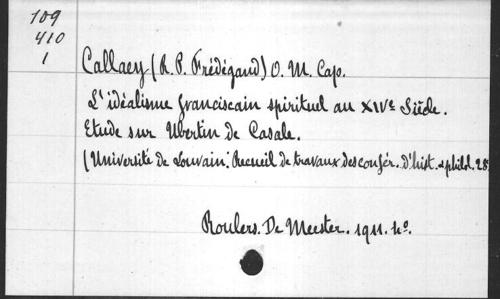 109
410
1
Callaey (R. P. Frédégand) O. M. Cap.
L'idéalisme franciscain spirituel au XIVe Siècle.
Etude sur Ubertin de Casale.
(Université de Louvain. Recueil de travaux des confér. d'hist. & philol. 28e
Roulers. De Meester. 1911. 4o.